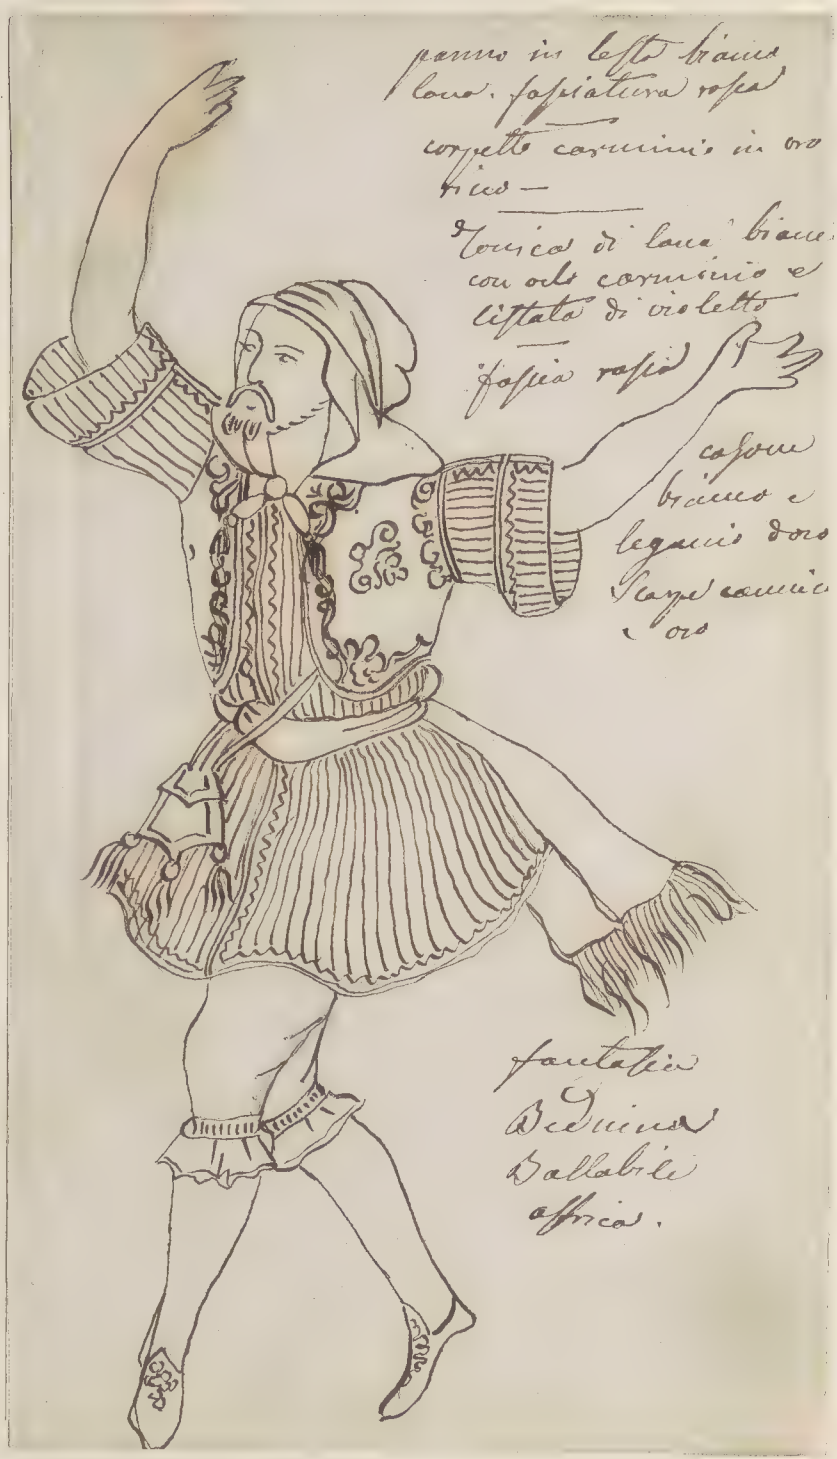 panno in testa bianco
lana. fasciatura rossa
corpetto carminio in oro
ricco —
Tonica di lana bianc
con orlo carminio e
listata di violetto
fascia rossa
calzone
bianco e
legacci d'oro
Scarpe carminio
e oro
fantasia
Beduina
Ballabile
affrica.